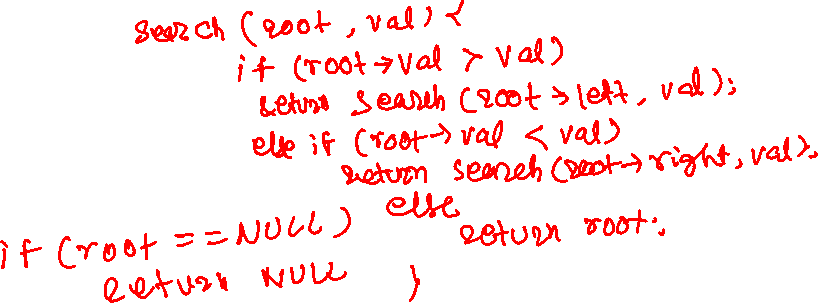 search (root, val) {
if (root→val > val)
return search (root→left, val);
else if (root→val < val)
return search (root→right, val);
else
return root;
if (root == NULL)
return NULL
}